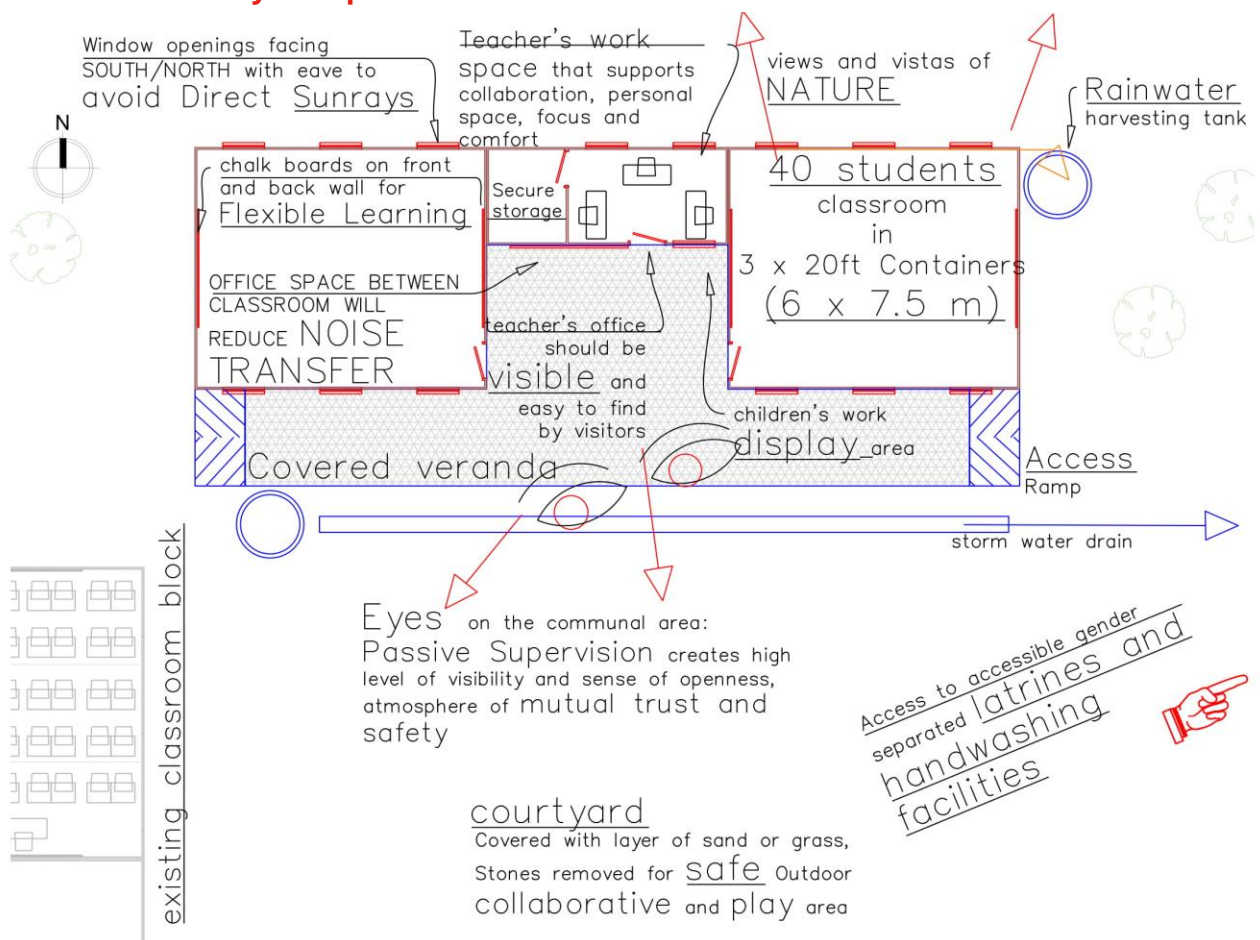 Window openings facing
SOUTH/NORTH with eave to
avoid Direct Sunrays
Teacher's work
space that supports
collaboration, personal
space, focus and
comfort
views and vistas of
NATURE
Rainwater
harvesting tank
N
chalk boards on front
and back wall for
Flexible Learning
Secure
storage
40 students
classroom
in
3 x 20ft Containers
(6 x 7.5 m)
OFFICE SPACE BETWEEN
CLASSROOM WILL
REDUCE NOISE
TRANSFER
teacher's office
should be
visible and
easy to find
by visitors
children's work
display area
Covered veranda
Access
Ramp
storm water drain
existing classroom block
Eyes on the communal area:
Passive Supervision creates high
level of visibility and sense of openness,
atmosphere of mutual trust and
safety
Access to accessible gender
separated latrines and
handwashing
facilities
courtyard
Covered with layer of sand or grass,
Stones removed for safe Outdoor
collaborative and play area